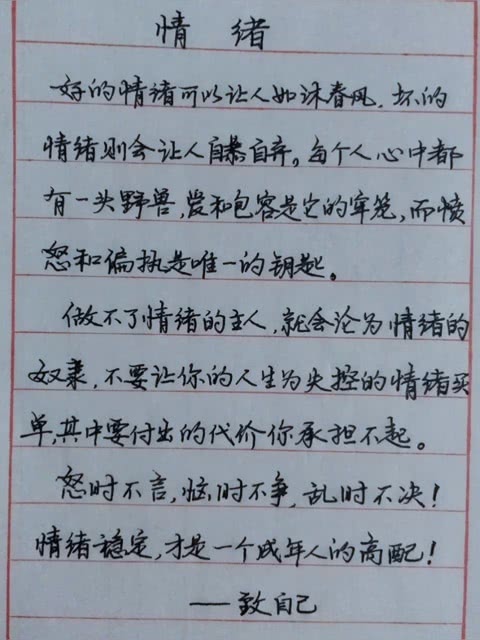 情绪
好的情绪可以让人如沐春风.坏的
情绪则会让人自暴自弃。每个人心中都
有一头野兽,爱和包容是它的牢笼,而愤
怒和偏执是唯一的钥匙。
做不了情绪的主人,就会沦为情绪的
奴隶,不要让你的人生为失控的情绪买
单,其中要付出的代价你承担不起。
怒时不言,恼时不争,乱时不决!
情绪稳定,才是一个成年人的高配!
——致自己